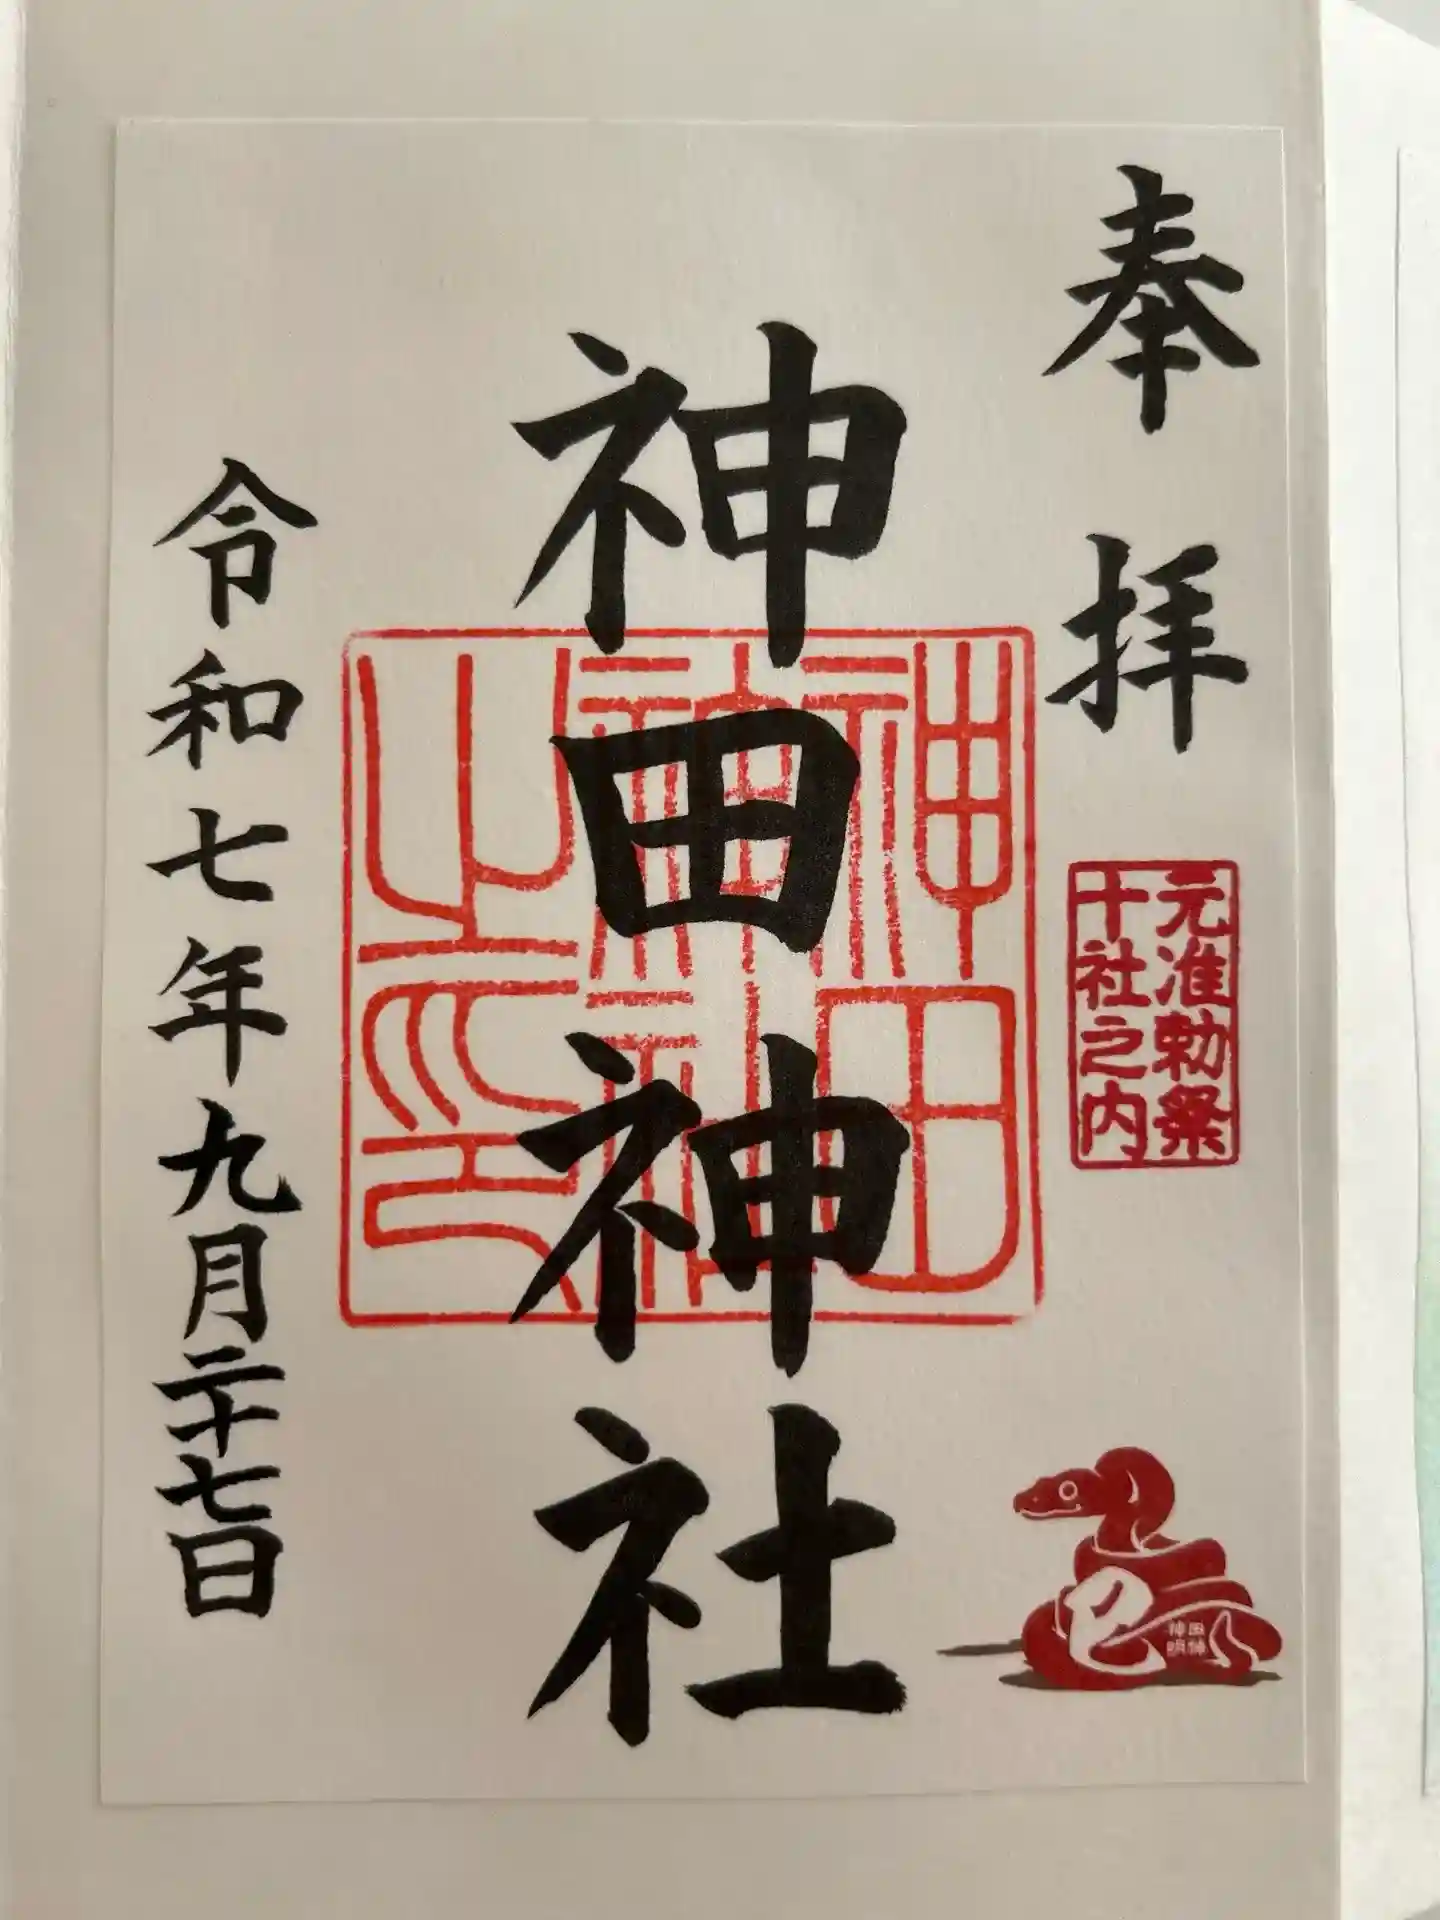 奉拝
元准勅祭
十社之内
巳
神田神社
神田
神社
之印
令和七年九月二十七日